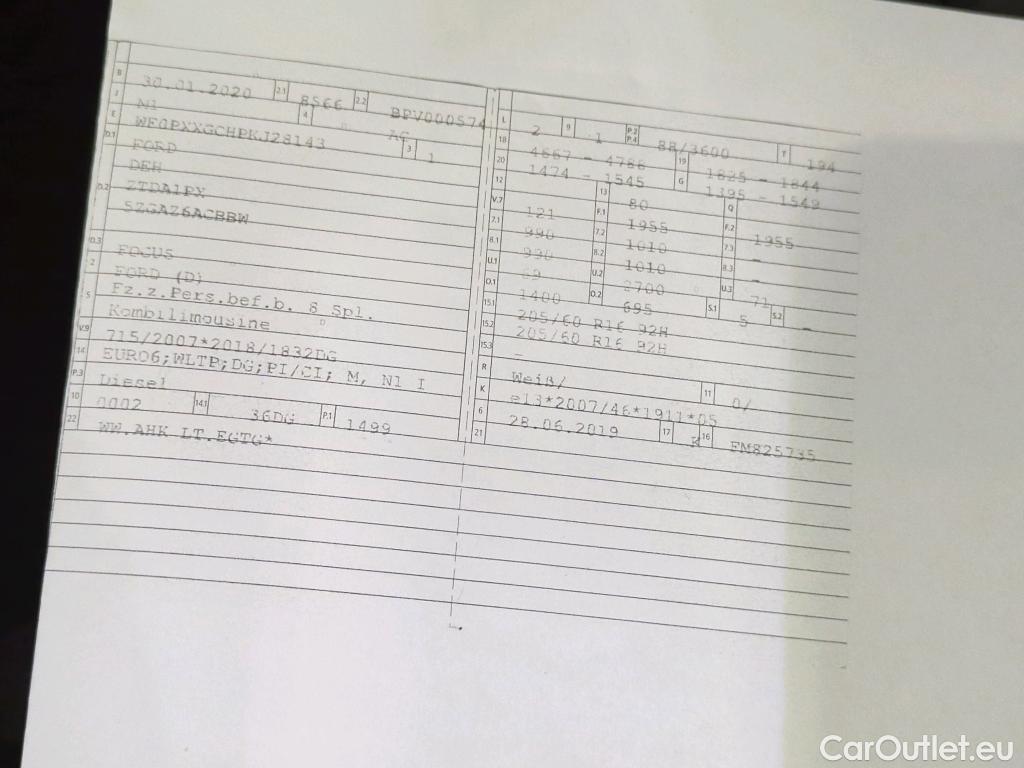 B 30.01.2020 2.1 8566 2.2 BPV000574
J N1 4 AC
E WF0PXXGCHPKJ28143 3 1
D.1 FORD
DEH
D.2 ZTDA1PX
5ZGAZ6ACBBW
D.3 FOCUS
2 FORD (D)
5 Fz.z.Pers.bef.b. 8 Spl.
Kombilimousine
V.9 715/2007*2018/1832DG
14 EURO6;WLTP;DG;PI/CI; M, N1 I
P.3 Diesel
10 0002 14.1 36DG P.1 1499
22 WW.AHK LT.EGTG*
L 2 9 1 P.2 P.4 88/3600 T 194
18 4667 - 4786 19 1825 - 1844
20 1474 - 1545 G 1395 - 1549
12 13 80 Q
V.7 121 F.1 1955 F.2 1955
7.1 990 7.2 1010 7.3 –
8.1 990 8.2 1010 8.3 –
U.1 69 U.2 2700 U.3 71
O.1 1400 O.2 695 S.1 5 S.2 –
15.1 205/60 R16 92H
15.2 205/60 R16 92H
15.3 –
R Weiß/ 11 0/
K e13*2007/46*1911*05
6 28.06.2019 17 K 16 FM825735
21
CarOutlet.eu